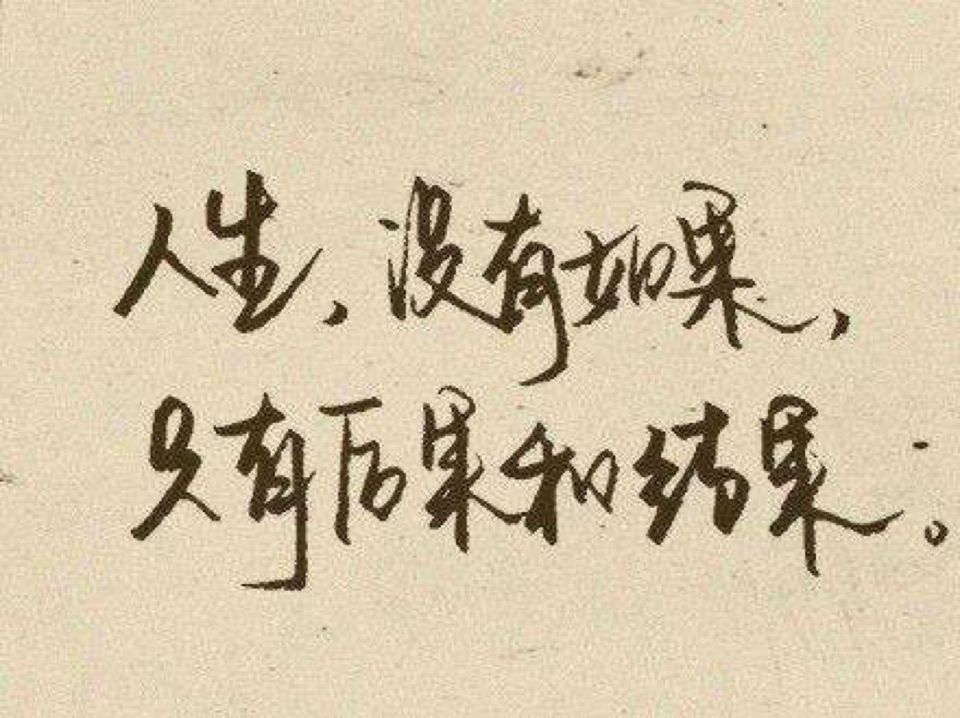 人生、没有如果，
只有后果和结果。